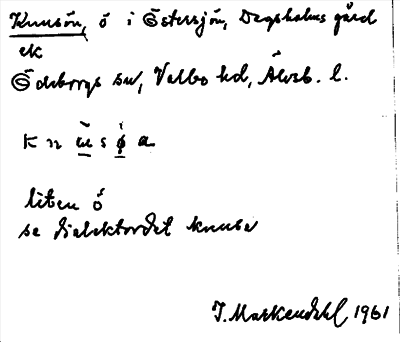 Knusön, ö i Östersjön, Dagsholms gård
ek
Ödeborgs sn, Valbo hd, Älvsb. l.
k n u s ø a
liten ö
se dialektordet knuse
J. Markendahl 1961